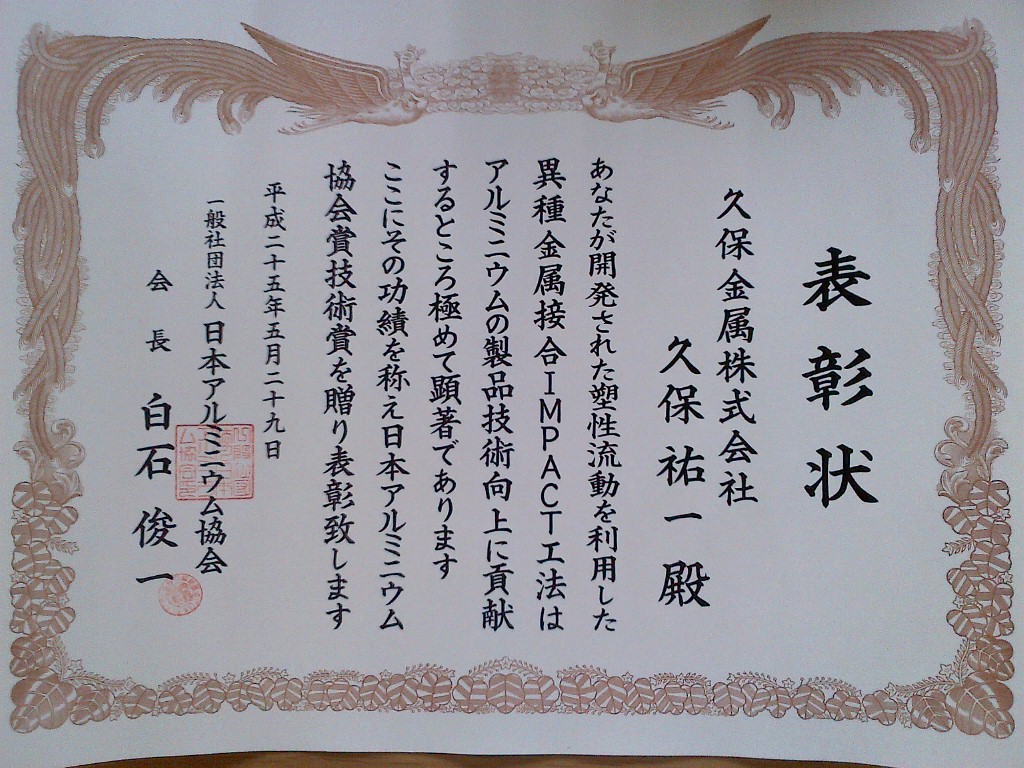 表彰状
久保金属株式会社
久保祐一殿
あなたが開発された塑性流動を利用した
異種金属接合IMPACT工法は
アルミニウムの製品技術向上に貢献
するところ極めて顕著であります
ここにその功績を称え日本アルミニウム
協会賞技術賞を贈り表彰致します
平成二十五年五月二十九日
一般社団法人 日本アルミニウム協会
会長 白石俊一